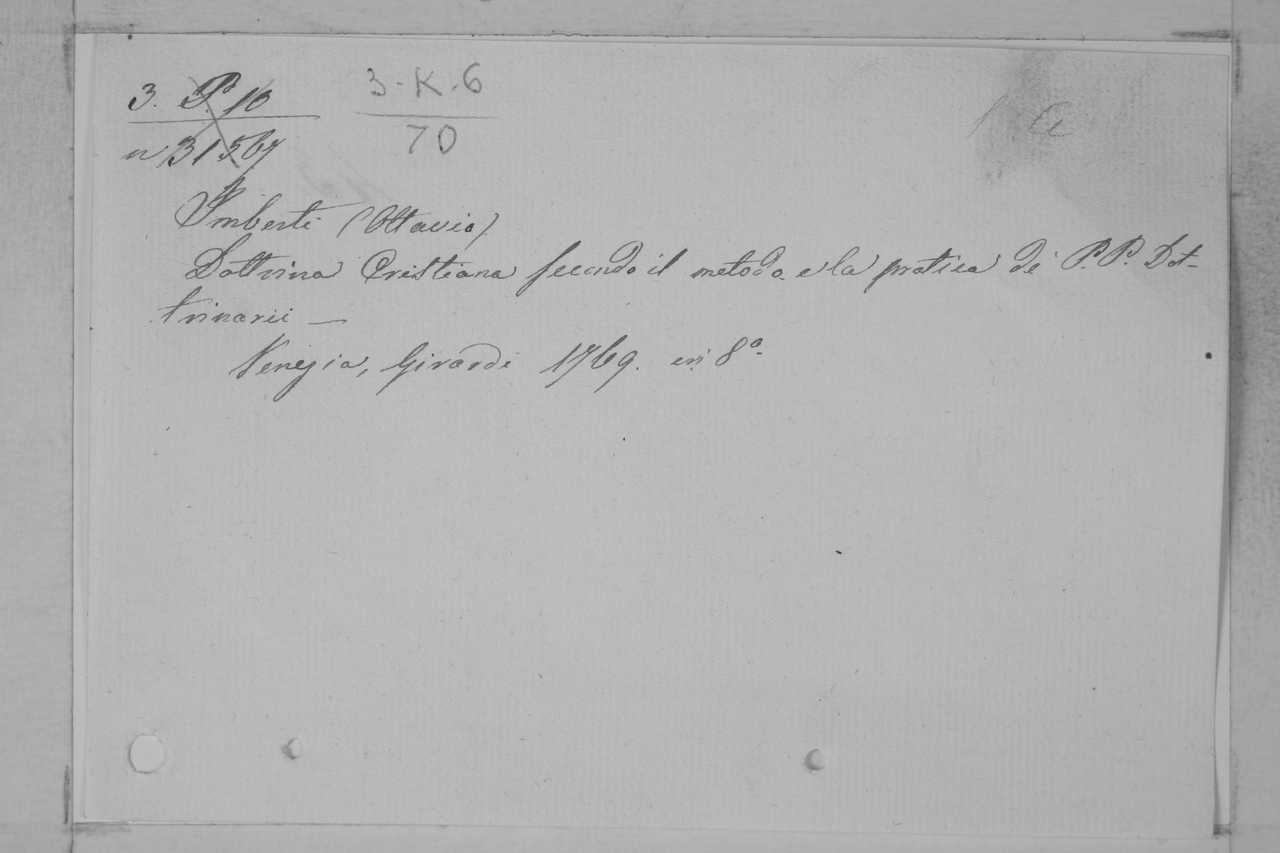 3. P. 10
3-K-6
n 31567
70
Imberti (Ottavio)
Dottrina Cristiana secondo il metodo e la pratica de' P.P. Dot-
trinarii —
Venezia, Girardi 1769. in 8º.